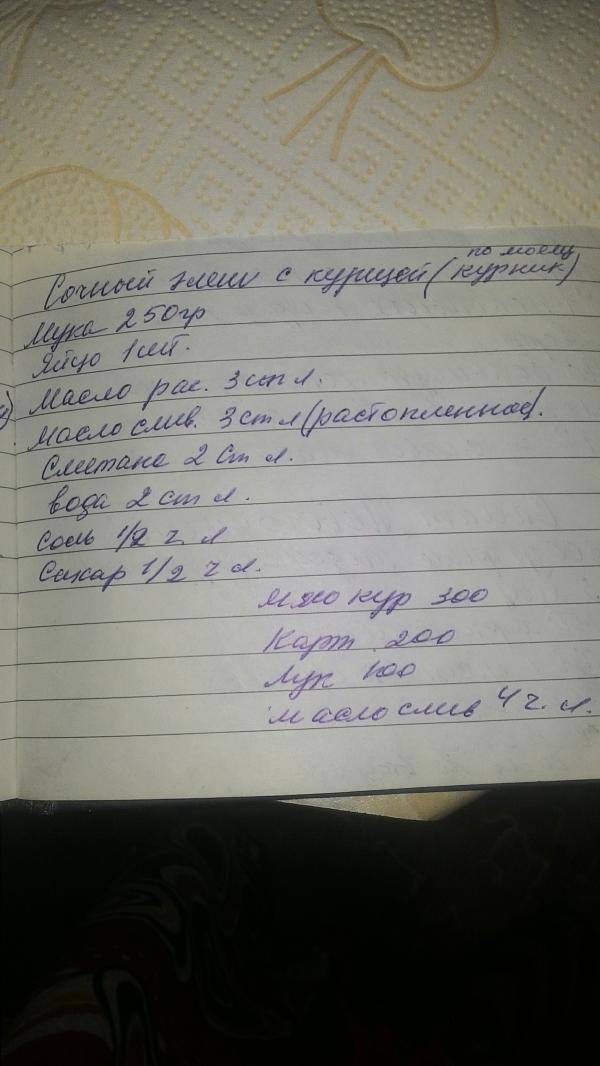 по моему
Сочный элеш с курицей (курник)
Мука 250гр
Яйцо 1шт.
Масло рас. 3 ст л.
Масло слив. 3 ст л (растопленное).
Сметана 2 ст л.
вода 2 ст л.
соль 1/2 ч. л
Сахар 1/2 ч л.
Мясо кур 300
Карт 200
Лук 100
Масло слив 4 ч. л.